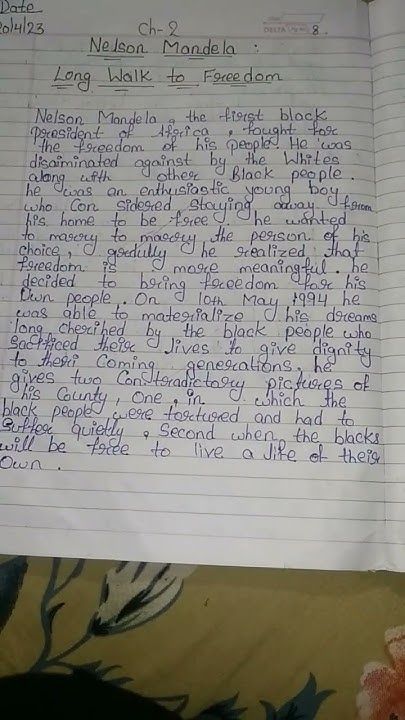 Date
20/4/23
Ch-2
8.
Nelson Mandela :
Long Walk to Freedom
Nelson Mandela, the first black
president of Africa, fought for
the freedom of his people. He was
disaiminated against by the Whites
along with other Black people.
he was an enthusiastic young boy
who Con sidered staying away from
his home to be free. he wanted
to marry to marry the person of his
choice, gradully he realized that
freedom is more meaningful. he
decided to bring freedom for his
own people. On 10th May 1994 he
was able to materialize his dreams
long cherihed by the black people who
sacrficed their lives to give dignity
to theri Coming generations. he
gives two Constradictory pictures of
his County, one, in which the
black people were tortured and had to
Suffer quietly, Second when the blacks
will be free to live a life of their
own.